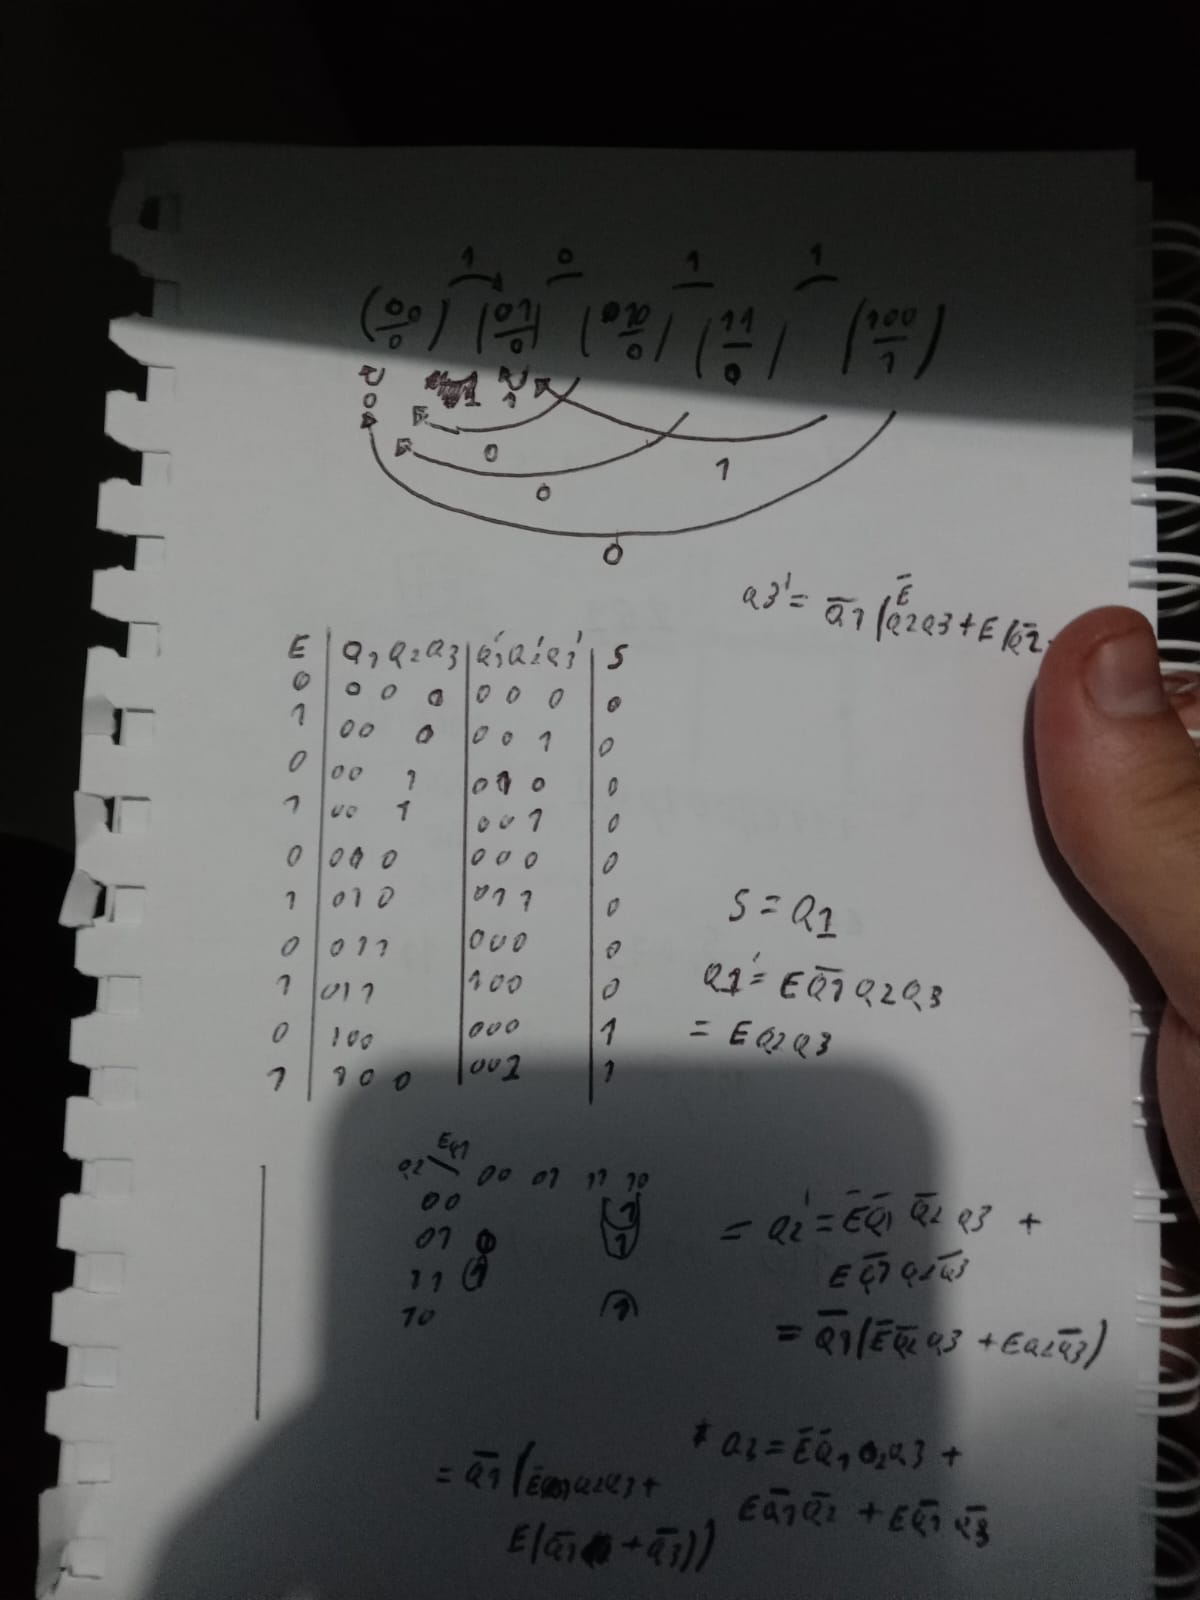 1 0 1 1
(00/0) (01/0) (010/0) (11/0) (100/1)
0 1
0 1
0
0
Q3' = Q̄1(ĒQ2Q3 + E(Q̄2
E | Q1 Q2 Q3 | Q1' Q2' Q3' | S
0 | 0 0 0 | 0 0 0 | 0
1 | 0 0 0 | 0 0 1 | 0
0 | 0 0 1 | 0 1 0 | 0
1 | 0 0 1 | 0 0 1 | 0
0 | 0 1 0 | 0 0 0 | 0
1 | 0 1 0 | 0 1 1 | 0
0 | 0 1 1 | 0 0 0 | 0
1 | 0 1 1 | 1 0 0 | 0
0 | 1 0 0 | 0 0 0 | 1
1 | 1 0 0 | 0 0 1 | 1
S = Q1
Q1' = E Q̄1 Q2 Q3
= E Q2 Q3
EQ1
Q2 00 01 11 10
00 1
01 0 1
11 1
10 1
= Q2' = Ē Q̄1 Q̄2 Q3 +
E Q̄1 Q2 Q̄3
= Q̄1(Ē Q̄2 Q3 + E Q2 Q̄3)
Q3 = Ē Q̄1 Q2 Q3 +
E Q̄1 Q̄2 + E Q̄1 Q̄3
= Q̄1(Ē Q2 Q3 +
E(Q̄1 + Q̄3))